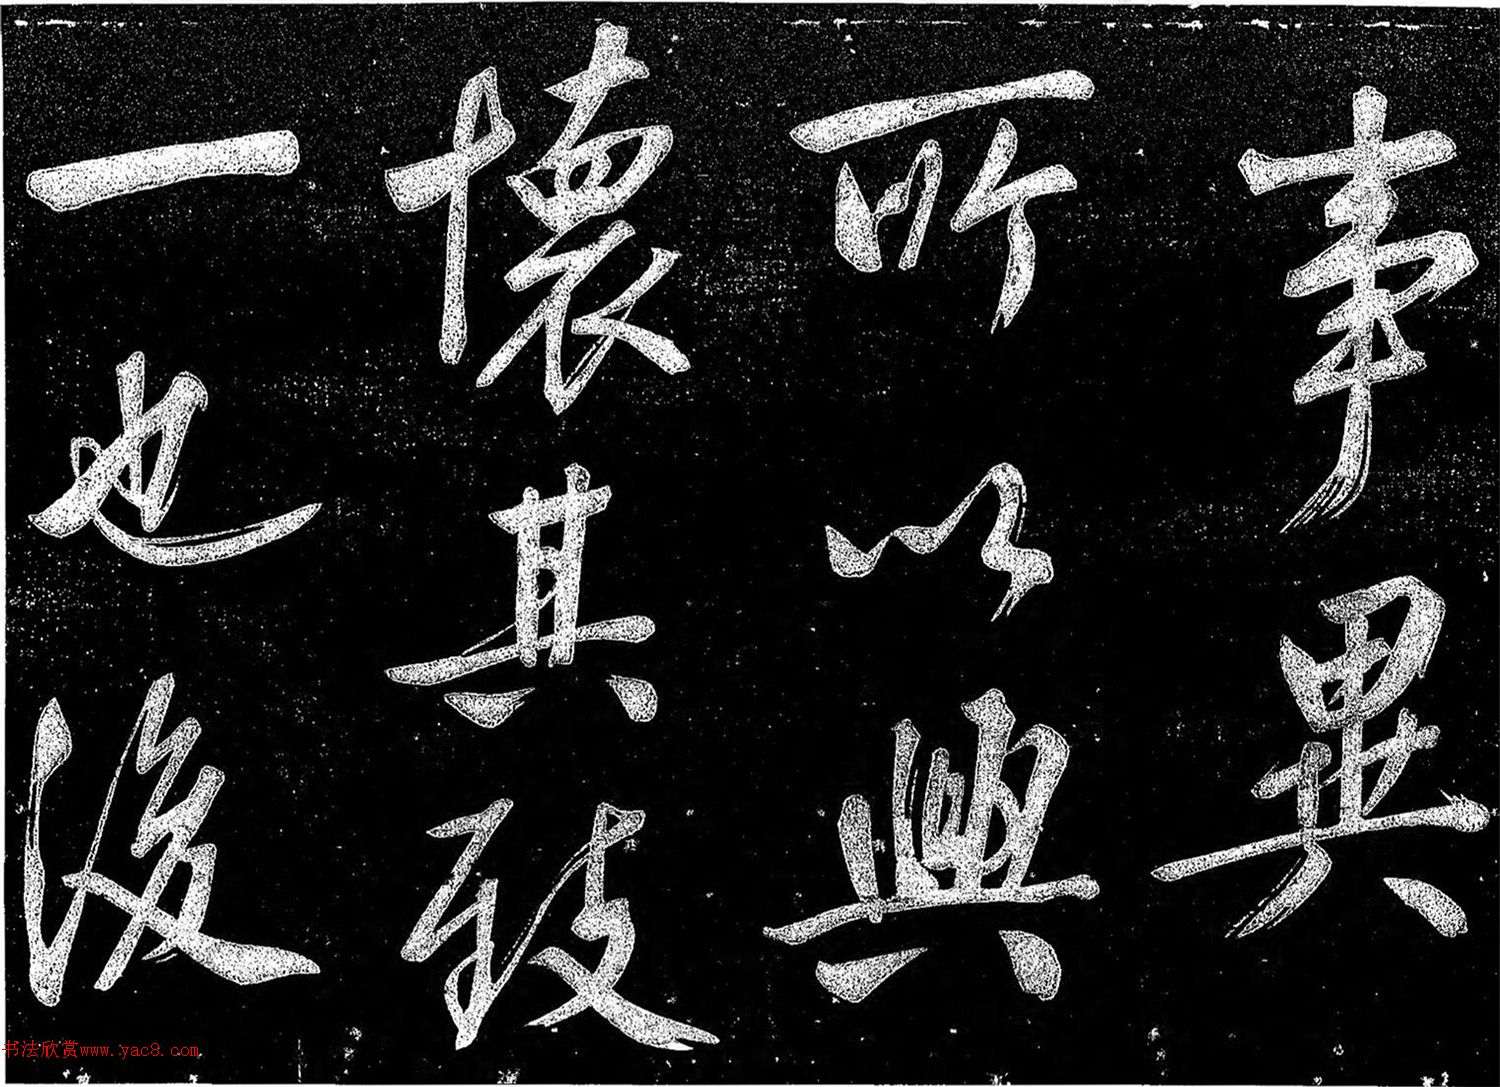 事異
所以興
懷其致
一也後
书法欣赏www.yac8.com